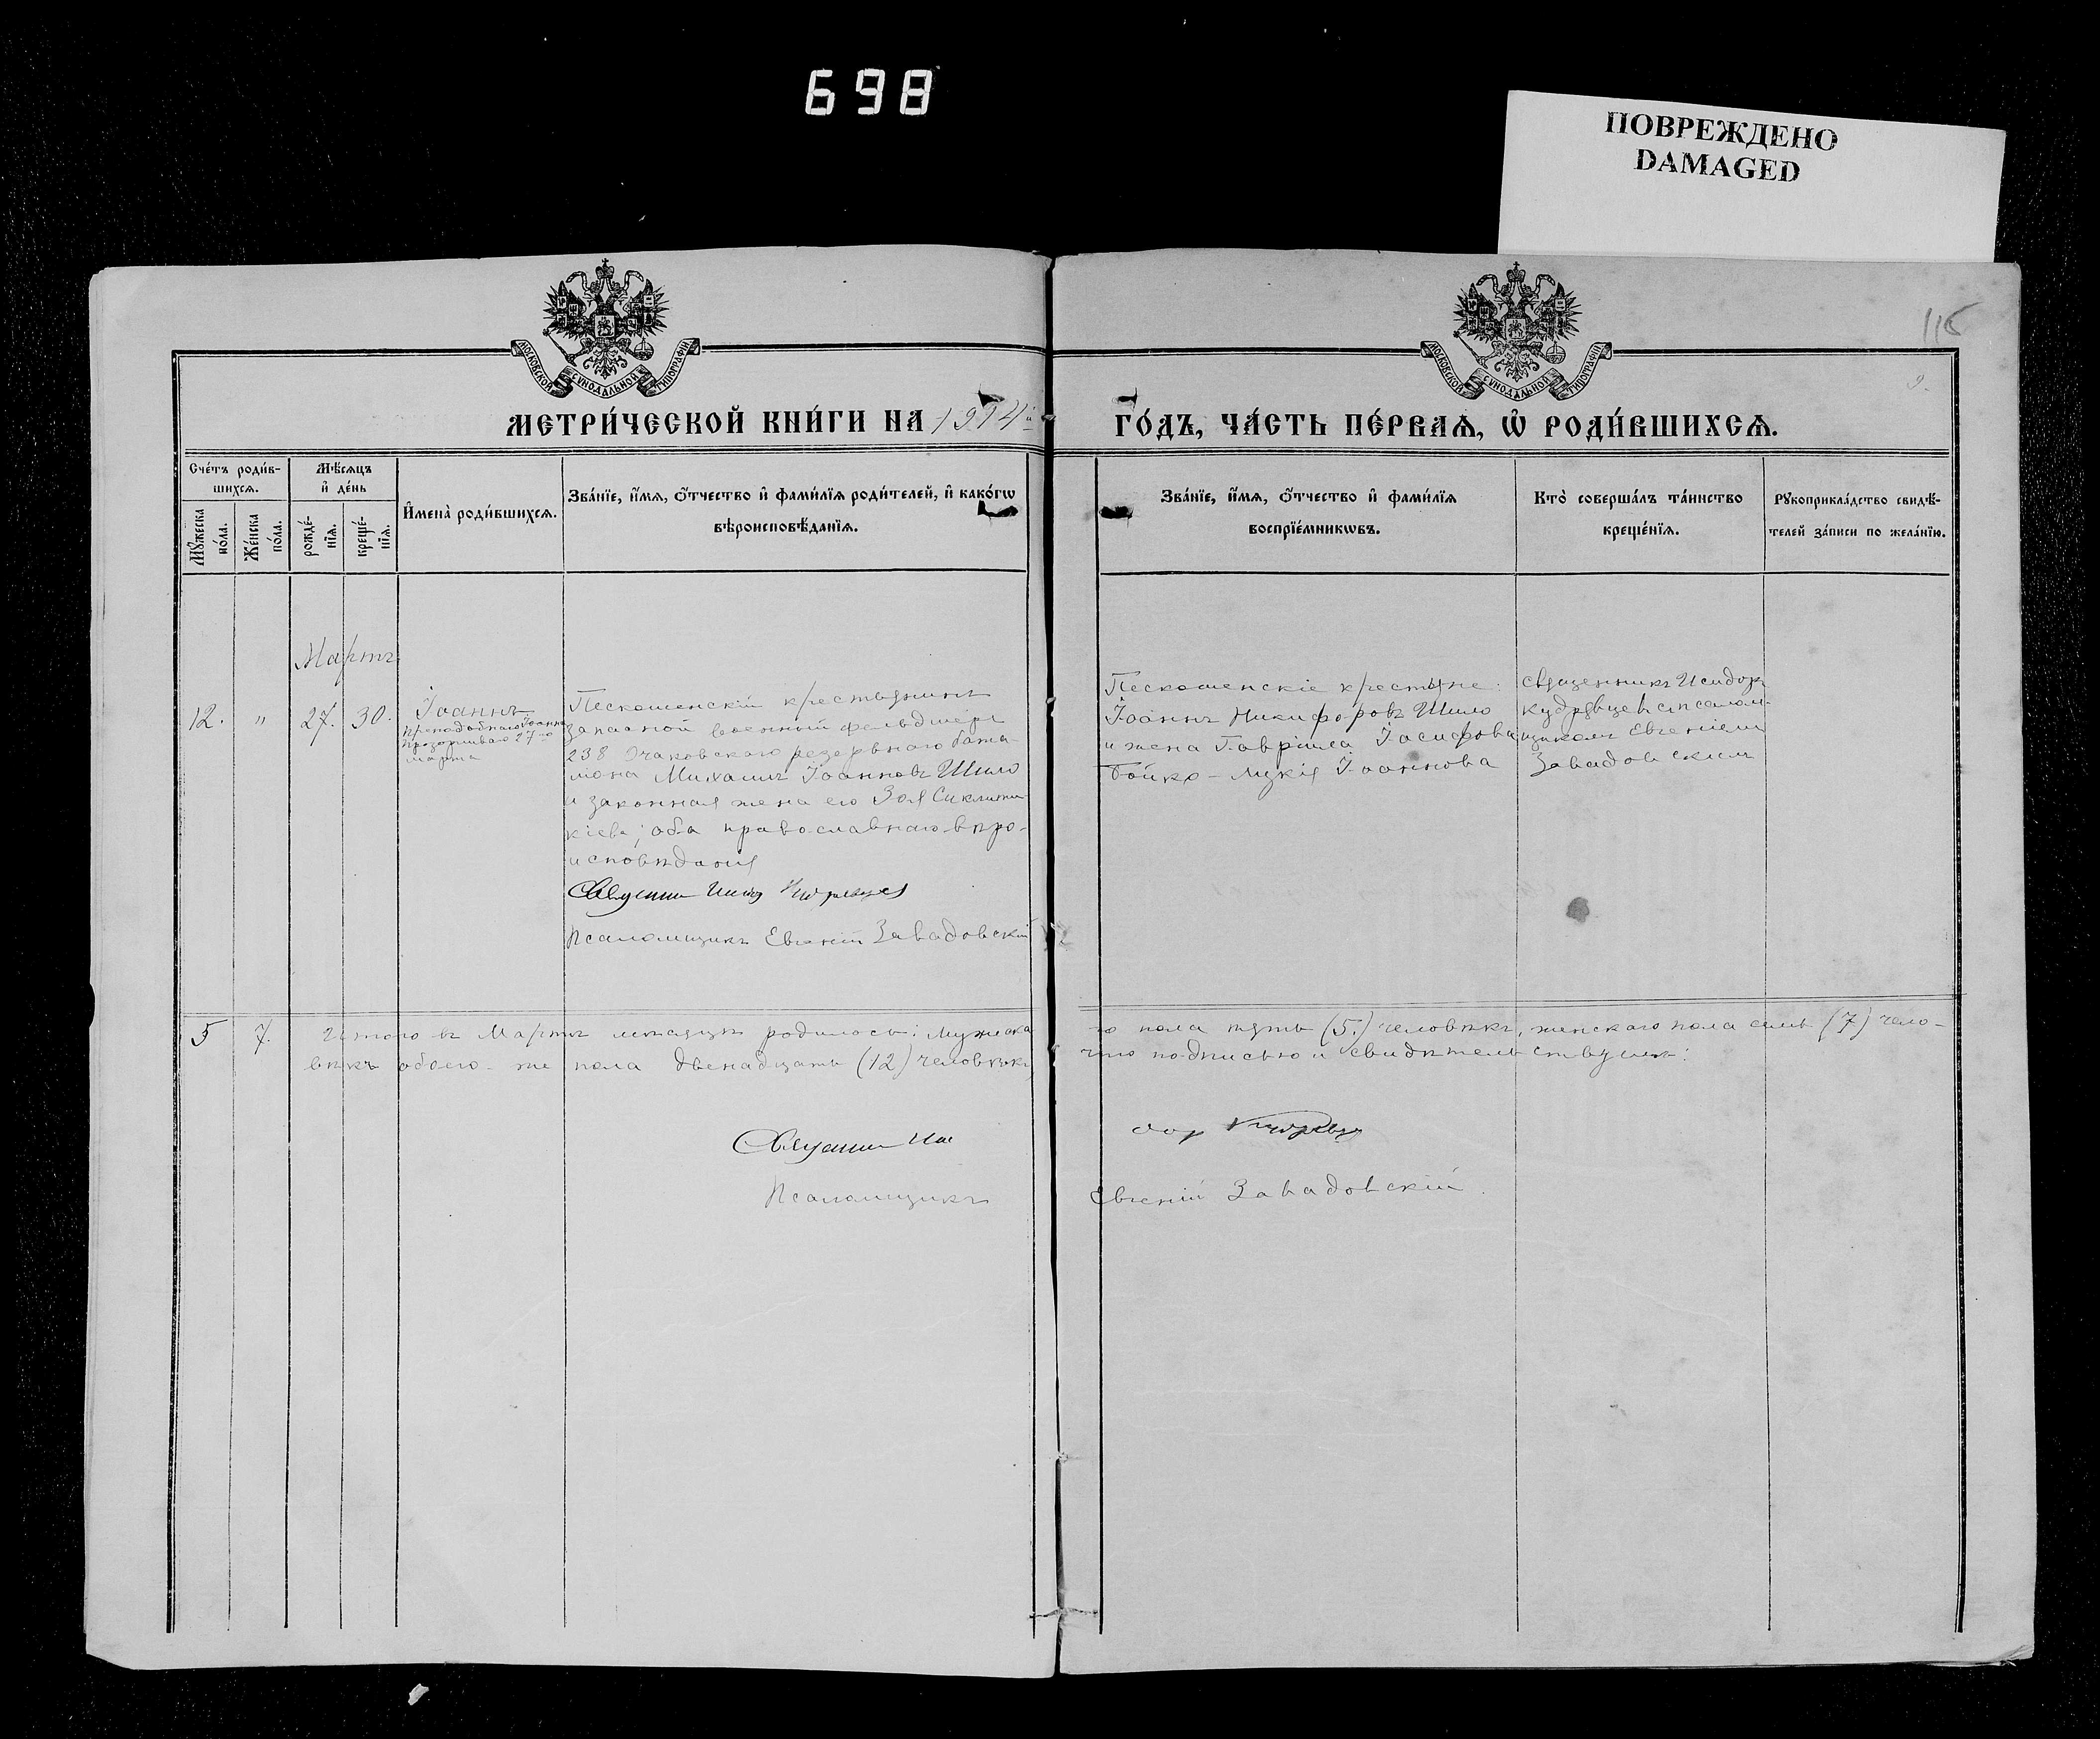 698
ПОВРЕЖДЕНО
DAMAGED
115
9.
МОСКОВСКОЙ СѴНОДАЛЬНОЙ ТИПОГРАФІИ
МОСКОВСКОЙ СѴНОДАЛЬНОЙ ТИПОГРАФІИ
МЕТРИ́ЧЕСКОЙ КНИ́ГИ НА 1914й ГО́ДЪ, ЧА́СТЬ ПЕ́РВАѦ, Ѡ҆ РОДИ́ВШИХСѦ.
Сче́тъ роди́в-
шихсѧ.
Мꙋ́жеска по́ла.
Же́нска по́ла.
Мѣ́сѧцъ
и҆ де́нь
рожде́-
нїѧ.
креще́-
нїѧ.
И҆мена̀ роди́вшихсѧ.
Зва́нїе, и҆́мѧ, ѻ҆́тчество и҆ фами́лїѧ роди́телей, и҆ како́гѡ
вѣроисповѣ́данїѧ.
Зва́нїе, и҆́мѧ, ѻ҆́тчество и҆ фами́лїѧ
воспрїе́мникѡвъ.
Кто̀ соверша́лъ та́инство
креще́нїѧ.
Рꙋкоприкла́дство свидѣ́-
телей за́писи по жела́нїю.
Мартъ
12. " 27. 30.
Іоаннъ
Преподобнаго Іоанна
Прозорливаго 27го
марта
Пескошенскій крестьянинъ
запасной военный фельдшеръ
238 Очаковскаго резервнаго бата-
ліона Михаилъ Іоанновъ Шило
и законная жена его Зоя
оба православнаго вѣро-
исповѣданія
Священникъ Исид Кудрявцев
Псаломщикъ Евгеній Завадовскій
Пескошенскіе крестьяне:
Іоаннъ Никифоровъ Шило
и жена Гавріила Іосифова
Бойко - Лукія Іоаннова
Священникъ Исидоръ
Кудрявцевъ с псалом-
щикомъ Евгеніемъ
Завадовскимъ
5 7. Итого въ Мартѣ мѣсяцѣ родилось: мужеска-
го пола пять (5.) человѣкъ, женскаго пола семь (7) чело-
вѣкъ обоего-же пола двенадцать (12) человѣкъ,
что подписью и свидѣтельствуемъ:
Священникъ Иси
дор Кудрявцев
Псаломщикъ Евгеній Завадовскій.